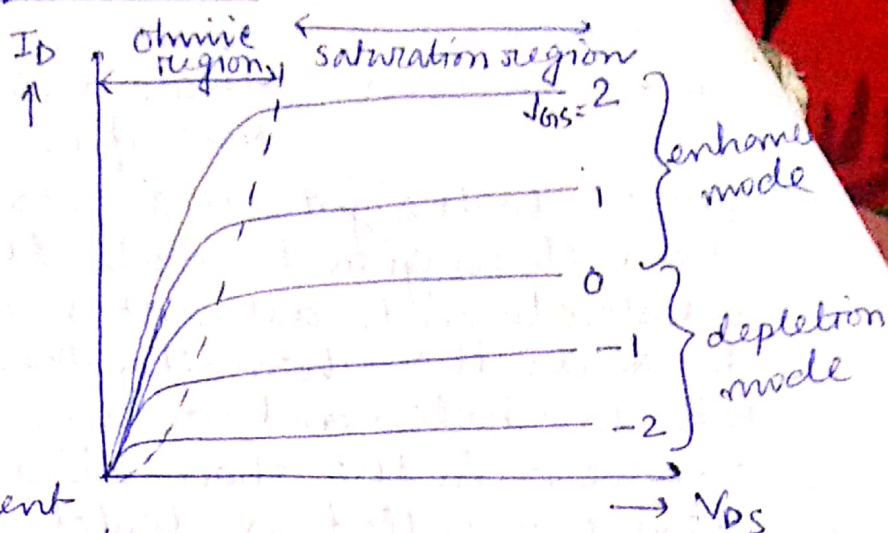 I_D
ohmic
region
saturation region
↑
V_GS = 2
enhance
mode
1
0
-1
depletion
mode
-2
ent
→ V_DS